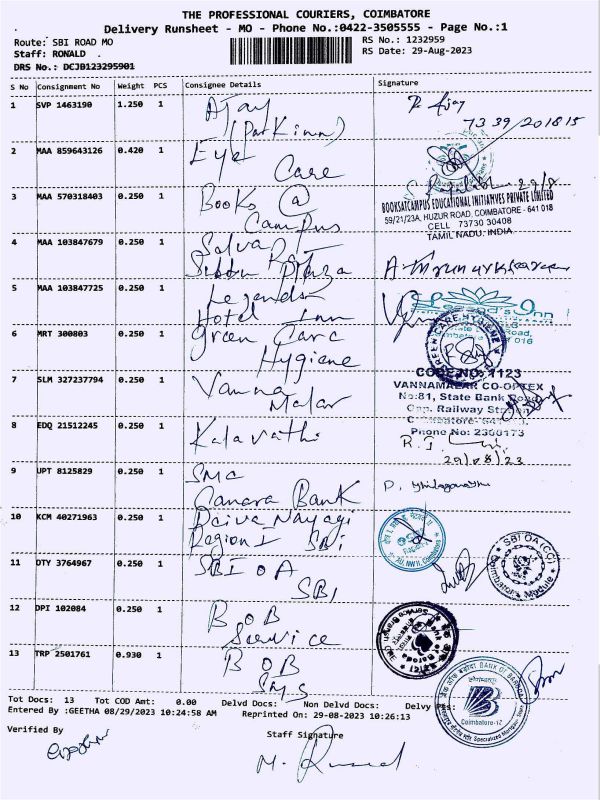 THE PROFESSIONAL COURIERS, COIMBATORE
Delivery Runsheet - MO - Phone No.:0422-3505555 - Page No.:1
Route: SBI ROAD MO
RS No.: 1232959
Staff: RONALD .
RS Date: 29-Aug-2023
DRS No.: DCJB123295901
S No Consignment No Weight PCS Consignee Details Signature
1 SVP 1463190 1.250 1 Ajay
(Parkinn)
R Ajay
73 39/201815
2 MAA 859643126 0.420 1 Eye
Care
29/8
3 MAA 570318403 0.250 1 Books @
Campus
BOOKSATCAMPUS EDUCATIONAL INITIATIVES PRIVATE LIMITED
59/21/23A, HUZUR ROAD, COIMBATORE - 641 018
CELL 73730 30408
TAMIL NADU. INDIA.
4 MAA 103847679 0.250 1 Selva
Plaza
5 MAA 103847725 0.250 1 Legends
Hotel Inn
Legend's Inn
Road,
016
6 MRT 300803 0.250 1 Green Care
Hygiene
GREEN CARE HYGIENE
7 SLM 327237794 0.250 1 Vanna
Malar
CODE NO: 1123
VANNAMALAR CO-OPTEX
No:81, State Bank Road
Opp. Railway Station
Coimbatore- 641
Phone No: 2300173
8 EDQ 21512245 0.250 1 Kalavathi
29/08/23
9 UPT 8125829 0.250 1 SME
Canara Bank
10 KCM 40271963 0.250 1 Deiva Nayagi
Region I SBI
11 DTY 3764967 0.250 1 SBI O A
SBI
SBI OA (CC)
Coimbatore Module
12 DPI 102084 0.250 1 B O B
Service
13 TRP 2501761 0.930 1 B O B
SMS
BANK OF BARODA
Coimbatore-12
Tot Docs: 13 Tot COD Amt: 0.00 Delvd Docs: Non Delvd Docs: Delvy
Entered By :GEETHA 08/29/2023 10:24:58 AM Reprinted On: 29-08-2023 10:26:13
Verified By
Staff Signature